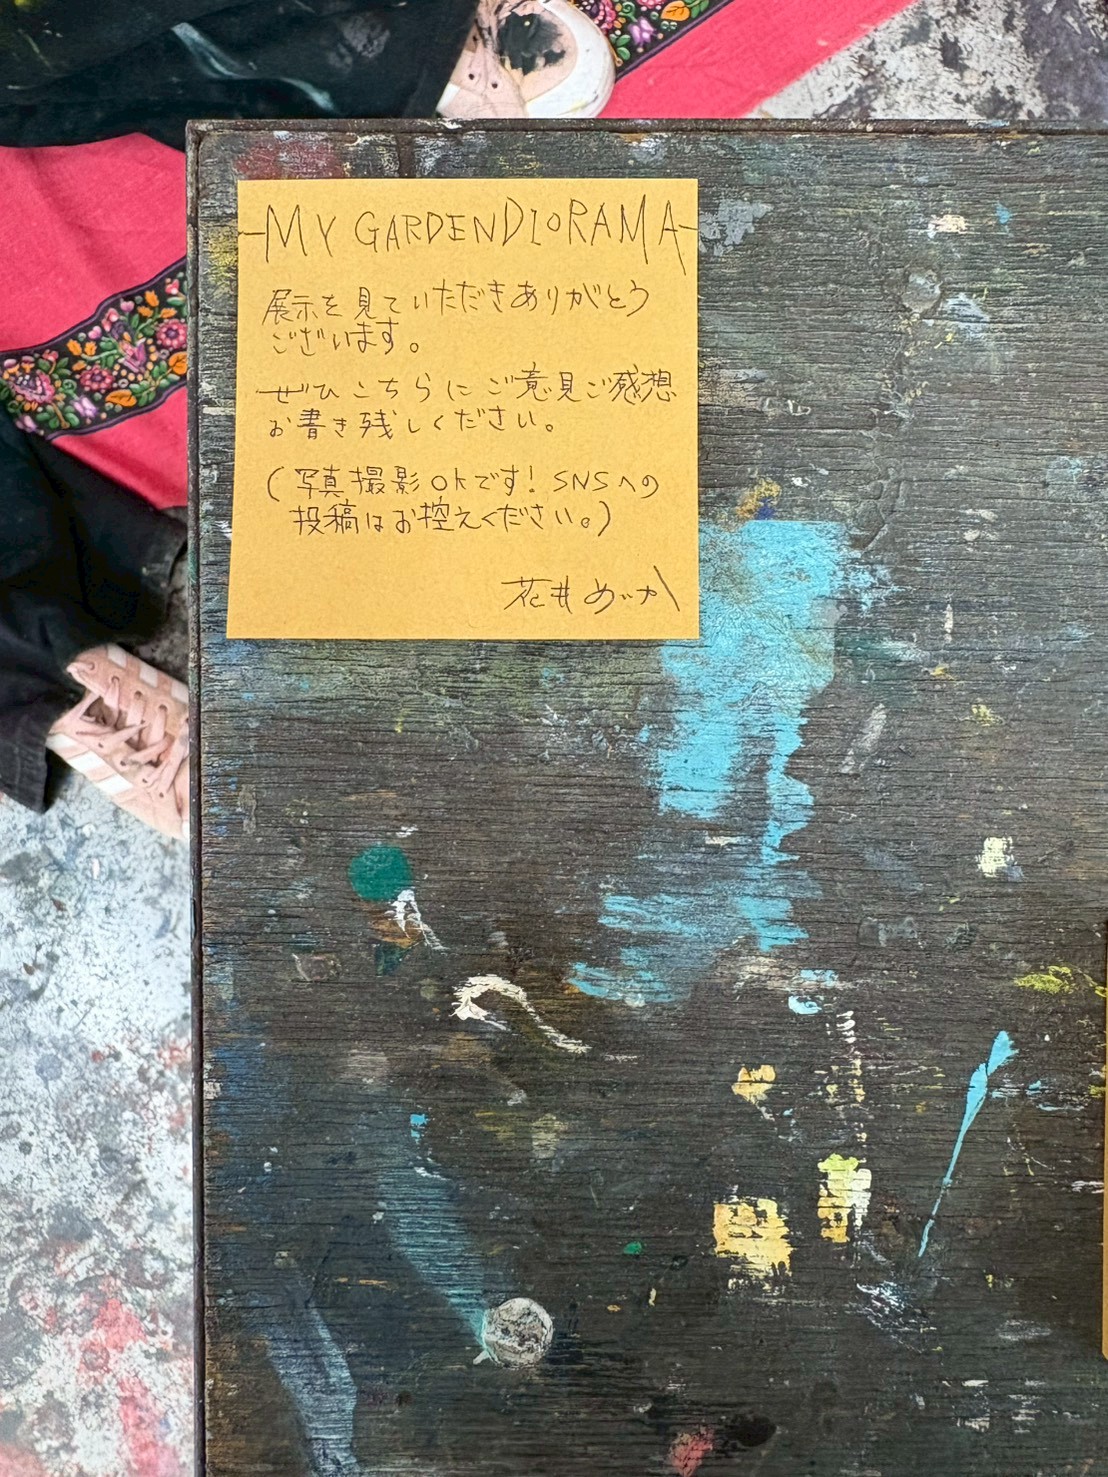 -MY GARDENDIORAMA-
展示を見ていただきありがとう
ございます。
ぜひこちらにご意見ご感想
お書き残しください。
(写真撮影OKです! SNSへの
投稿はお控えください。)
花井